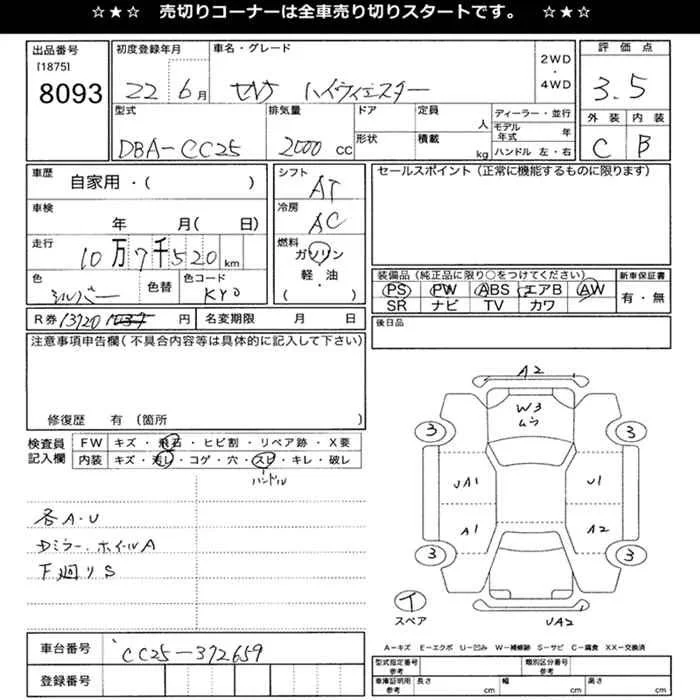 ☆★☆ 売切りコーナーは全車売り切りスタートです。 ☆★☆
出品番号
[1875]
8093
初度登録年月
22 6月
車名・グレード
セレナ ハイウェイスター
2WD・4WD
評価点
3.5
外装 内装
C B
型式
DBA-CC25
排気量
2000 cc
ドア
形状
定員
人
積載
kg
ディーラー・並行
モデル年式 年
ハンドル 左・右
車歴
自家用・( )
車検
年 月( 日)
走行
10万7千520 km
色
シルバー
色替
色コード
KY0
シフト
AT
冷房
AC
燃料
ガソリン
軽・油
( )
セールスポイント(正常に機能するものに限ります)
装備品(純正品に限り○をつけてください)
PS PW ABS エアB AW
SR ナビ TV カワ
新車保証書
有・無
R券 13720 円
名変期限 月 日
後日品
注意事項申告欄(不具合内容等は具体的に記入して下さい)
修復歴 有(箇所 )
検査員記入欄
FW キズ・飛石・ヒビ割・リペア跡・X要
内装 キズ・汚レ・コゲ・穴・スレ・キレ・破レ
ハンドル
各A・U
Dミラー、ホイルA
下廻りS
A2
W3
ムラ
3 3
UA1 U1
A1 A2
3 3
イ
スペア
UA2
A−キズ E−エクボ U−凹み W−補修跡 S−サビ C−腐食 XX−交換済
車台番号
CC25-372659
登録番号
型式指定番号
参考
類別区分番号
参考
車庫証明用
参考
長さ cm 幅 cm 高さ cm